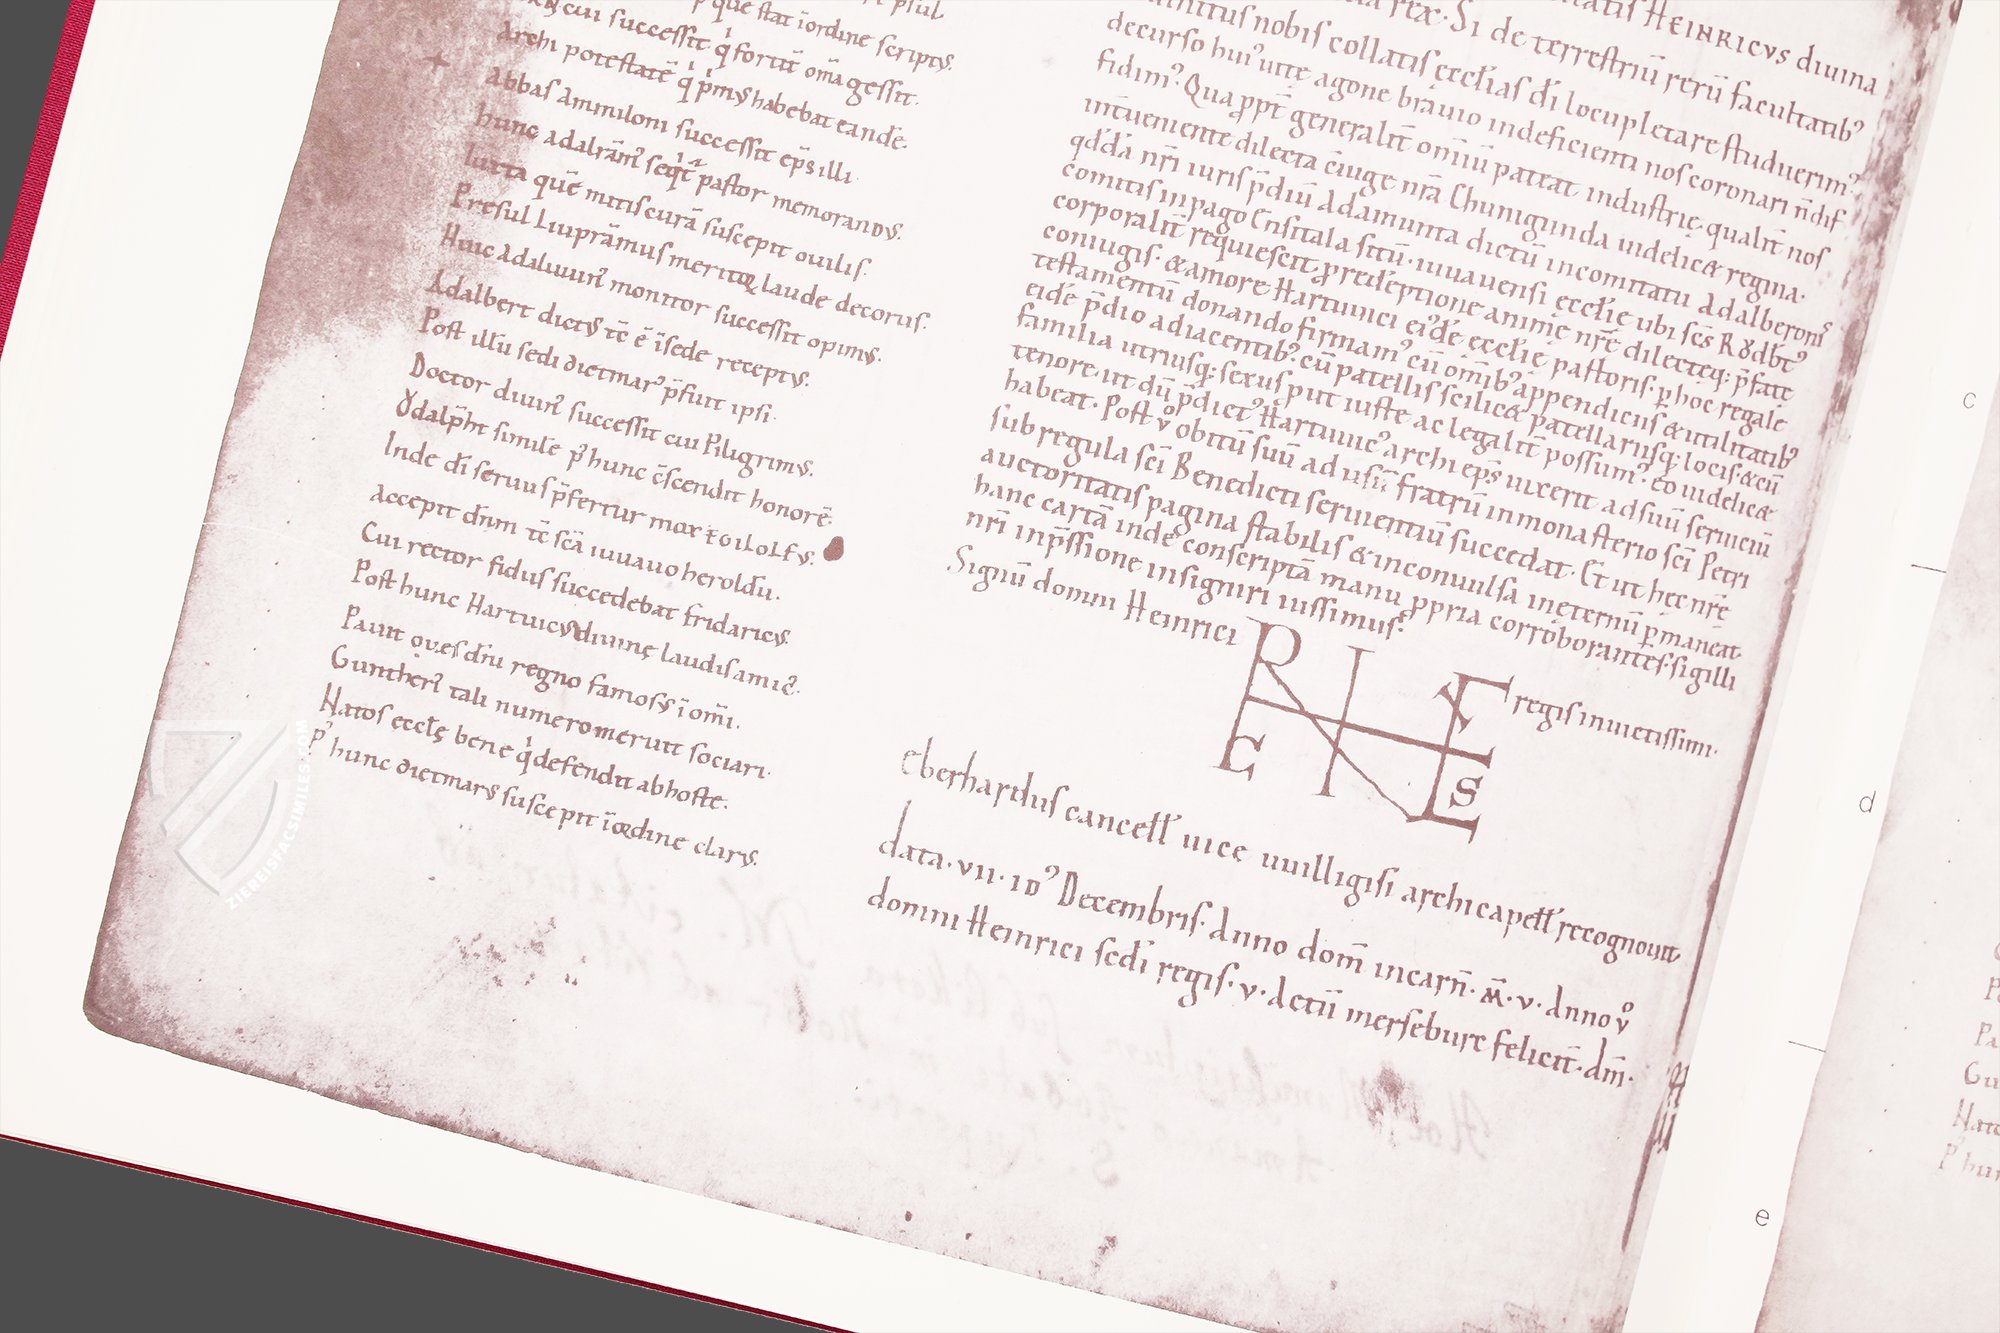 p̄ que stat īordine scriptꝰ.
cui successit q̍ fortū om̄a gessit.
Archi potestatē q̍ p̍mꝰ habebat eandē.
Abbas Ammiloni successit ep̄s illi.
hunc adalrām̉ seq̍t̉ pastor memorandꝰ.
Iuxta quē mitis curā suscepit ouilis.
Presul Liuprāmus meritoꝝ laude decorus.
Huic adaluuin̉ monitor successit opimꝰ.
Adalbert dictꝰ tē ē īsede receptꝰ.
Post illū sedi dietmar̉ p̄fuit ipsi.
Doctor diuin̉ successit cui Piligrimꝰ.
Ȣdalp̄ht simile p̉ hunc c̄scendit honorē.
Inde di̅ seruus p̄fertur mox EGILOLFꝰ.
Accepit dn̄m tē scā iuuauo heroldū.
Cui rector fidus succedebat fridaricꝰ.
Post hunc Hartuuicꝰ diuinę laudis amic̉.
Pauit oues diu regno famosꝰ ī om̄i.
Gunther̉ tali numero meruit sociari.
Natos eccłę bene q̍ defendit abhoste.
P̉ hunc dietmarꝰ suscepit īordine clarꝰ.
HEINRICVS diuina
rex. Si de terrestriū rerū facultatib̉
nobis collatis ęcclias di̅ locupletare studuerim̉.
decurso huỉ uitę agone brauio indeficienti nos coronari n̄ dif
fidim̉. Qua ꝓpt̄ generalit̄ om̄iū pateat industrię. qualit̄ nos
interueniente dilecta c̄iuge nr̄a Chunigunda uidelic& regina.
qd̄dā nr̄i iuris p̄diū Adamunta dictū incomitatu Adalberonis
comitis inpago Ensitala sitū. iuuauensi ęcclię ubi sc̄s Rȣdb̄t̉
corporalit̄ requiescit. ꝓ redēptione animę nr̄ę dilectęq; p̄fate
coniugis. & amore Hartuuici eỉdē ęcclię pastoris. ꝑ hoc regale
testamentū donando firmam̉ cū om̄ib̉ appendiciis & utilitatib̉
eidē p̄dio adiacentib̉. cū patellis scilic& patellariisq; locis & cū
familia utriusq; sexus put iuste ac legalit̄ possum̉. eo uidelic&
tenore. ut dū p̄dict̉ Hartuuic̉ archi ep̄s uixerit adsuū seruiciū
habeat. Post ů obitū suū ad usū fratrū inmonasterio sc̄i Petri
sub regula sc̄i Benedicti seruientiū succedat. Et ut hęc nr̄ę
auctoritatis pagina stabilis & inconuulsa inęternū ꝑmaneat.
hanc cartā inde conscriptā manu ꝓpria corroborantes. sigilli
nr̄i inp̄ssione insigniri iussimus.
Signū domni Heinrici
regis inuictissimi.
eberhardus cancell̉ uice uuilligisi archicapell̉ recognouit.
data. vii. id̉ Decembris. Anno dom̄ incarn̄. M̄. v. Anno ů
domni Heinrici sed̄i regis. v. Actū merseburc felicit̄. Am̄.
c
d
e
ZIEREISFACSIMILES.COM